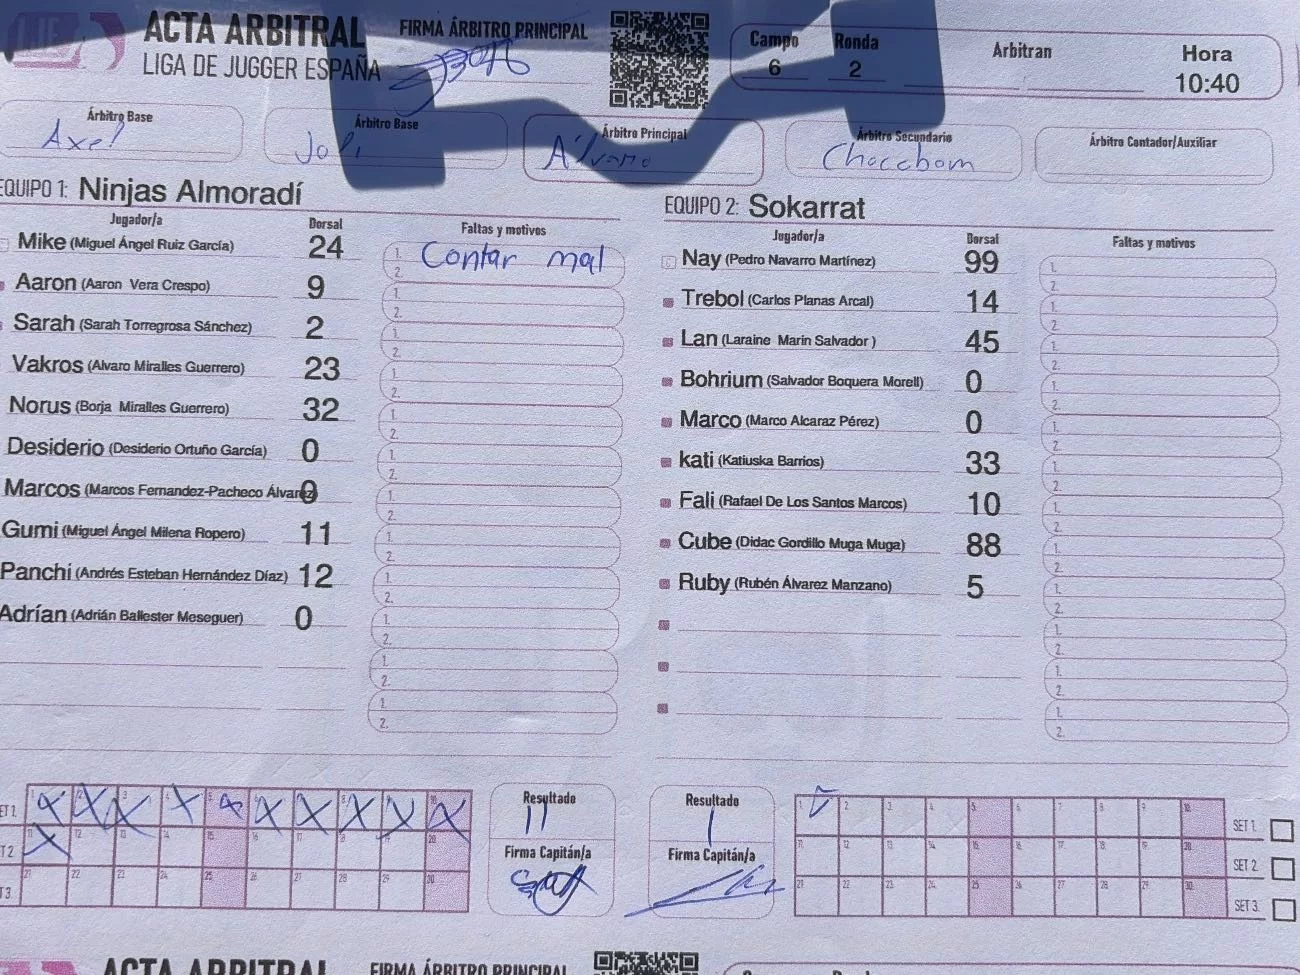 ACTA ARBITRAL
LIGA DE JUGGER ESPAÑA
FIRMA ÁRBITRO PRINCIPAL
Campo Ronda Arbitran Hora
6 2 10:40
Árbitro Base Árbitro Base Árbitro Principal Árbitro Secundario Árbitro Contador/Auxiliar
Axel Joli Álvaro Chocobom
EQUIPO 1: Ninjas Almoradí
Jugador/a Dorsal Faltas y motivos
Mike (Miguel Ángel Ruiz García) 24 1. Contar mal
2.
Aaron (Aaron Vera Crespo) 9 1.
2.
Sarah (Sarah Torregrosa Sánchez) 2 1.
2.
Vakros (Alvaro Miralles Guerrero) 23 1.
2.
Norus (Borja Miralles Guerrero) 32 1.
2.
Desiderio (Desiderio Ortuño García) 0 1.
2.
Marcos (Marcos Fernandez-Pacheco Álvarez) 0 1.
2.
Gumi (Miguel Ángel Milena Ropero) 11 1.
2.
Panchi (Andrés Esteban Hernández Díaz) 12 1.
2.
Adrían (Adrián Ballester Meseguer) 0 1.
2.
1.
2.
1.
2.
EQUIPO 2: Sokarrat
Jugador/a Dorsal Faltas y motivos
Nay (Pedro Navarro Martínez) 99 1.
2.
Trebol (Carlos Planas Arcal) 14 1.
2.
Lan (Laraine Marin Salvador ) 45 1.
2.
Bohrium (Salvador Boquera Morell) 0 1.
2.
Marco (Marco Alcaraz Pérez) 0 1.
2.
kati (Katiuska Barrios) 33 1.
2.
Fali (Rafael De Los Santos Marcos) 10 1.
2.
Cube (Didac Gordillo Muga Muga) 88 1.
2.
Ruby (Rubén Álvarez Manzano) 5 1.
2.
1.
2.
1.
2.
1.
2.
Resultado
11
Firma Capitán/a
Resultado
1
Firma Capitán/a
1 2 3 4 5 6 7 8 9 10 SET 1.
11 12 13 14 15 16 17 18 19 20 SET 2.
21 22 23 24 25 26 27 28 29 30 SET 3.
ACTA ARBITRAL
FIRMA ÁRBITRO PRINCIPAL